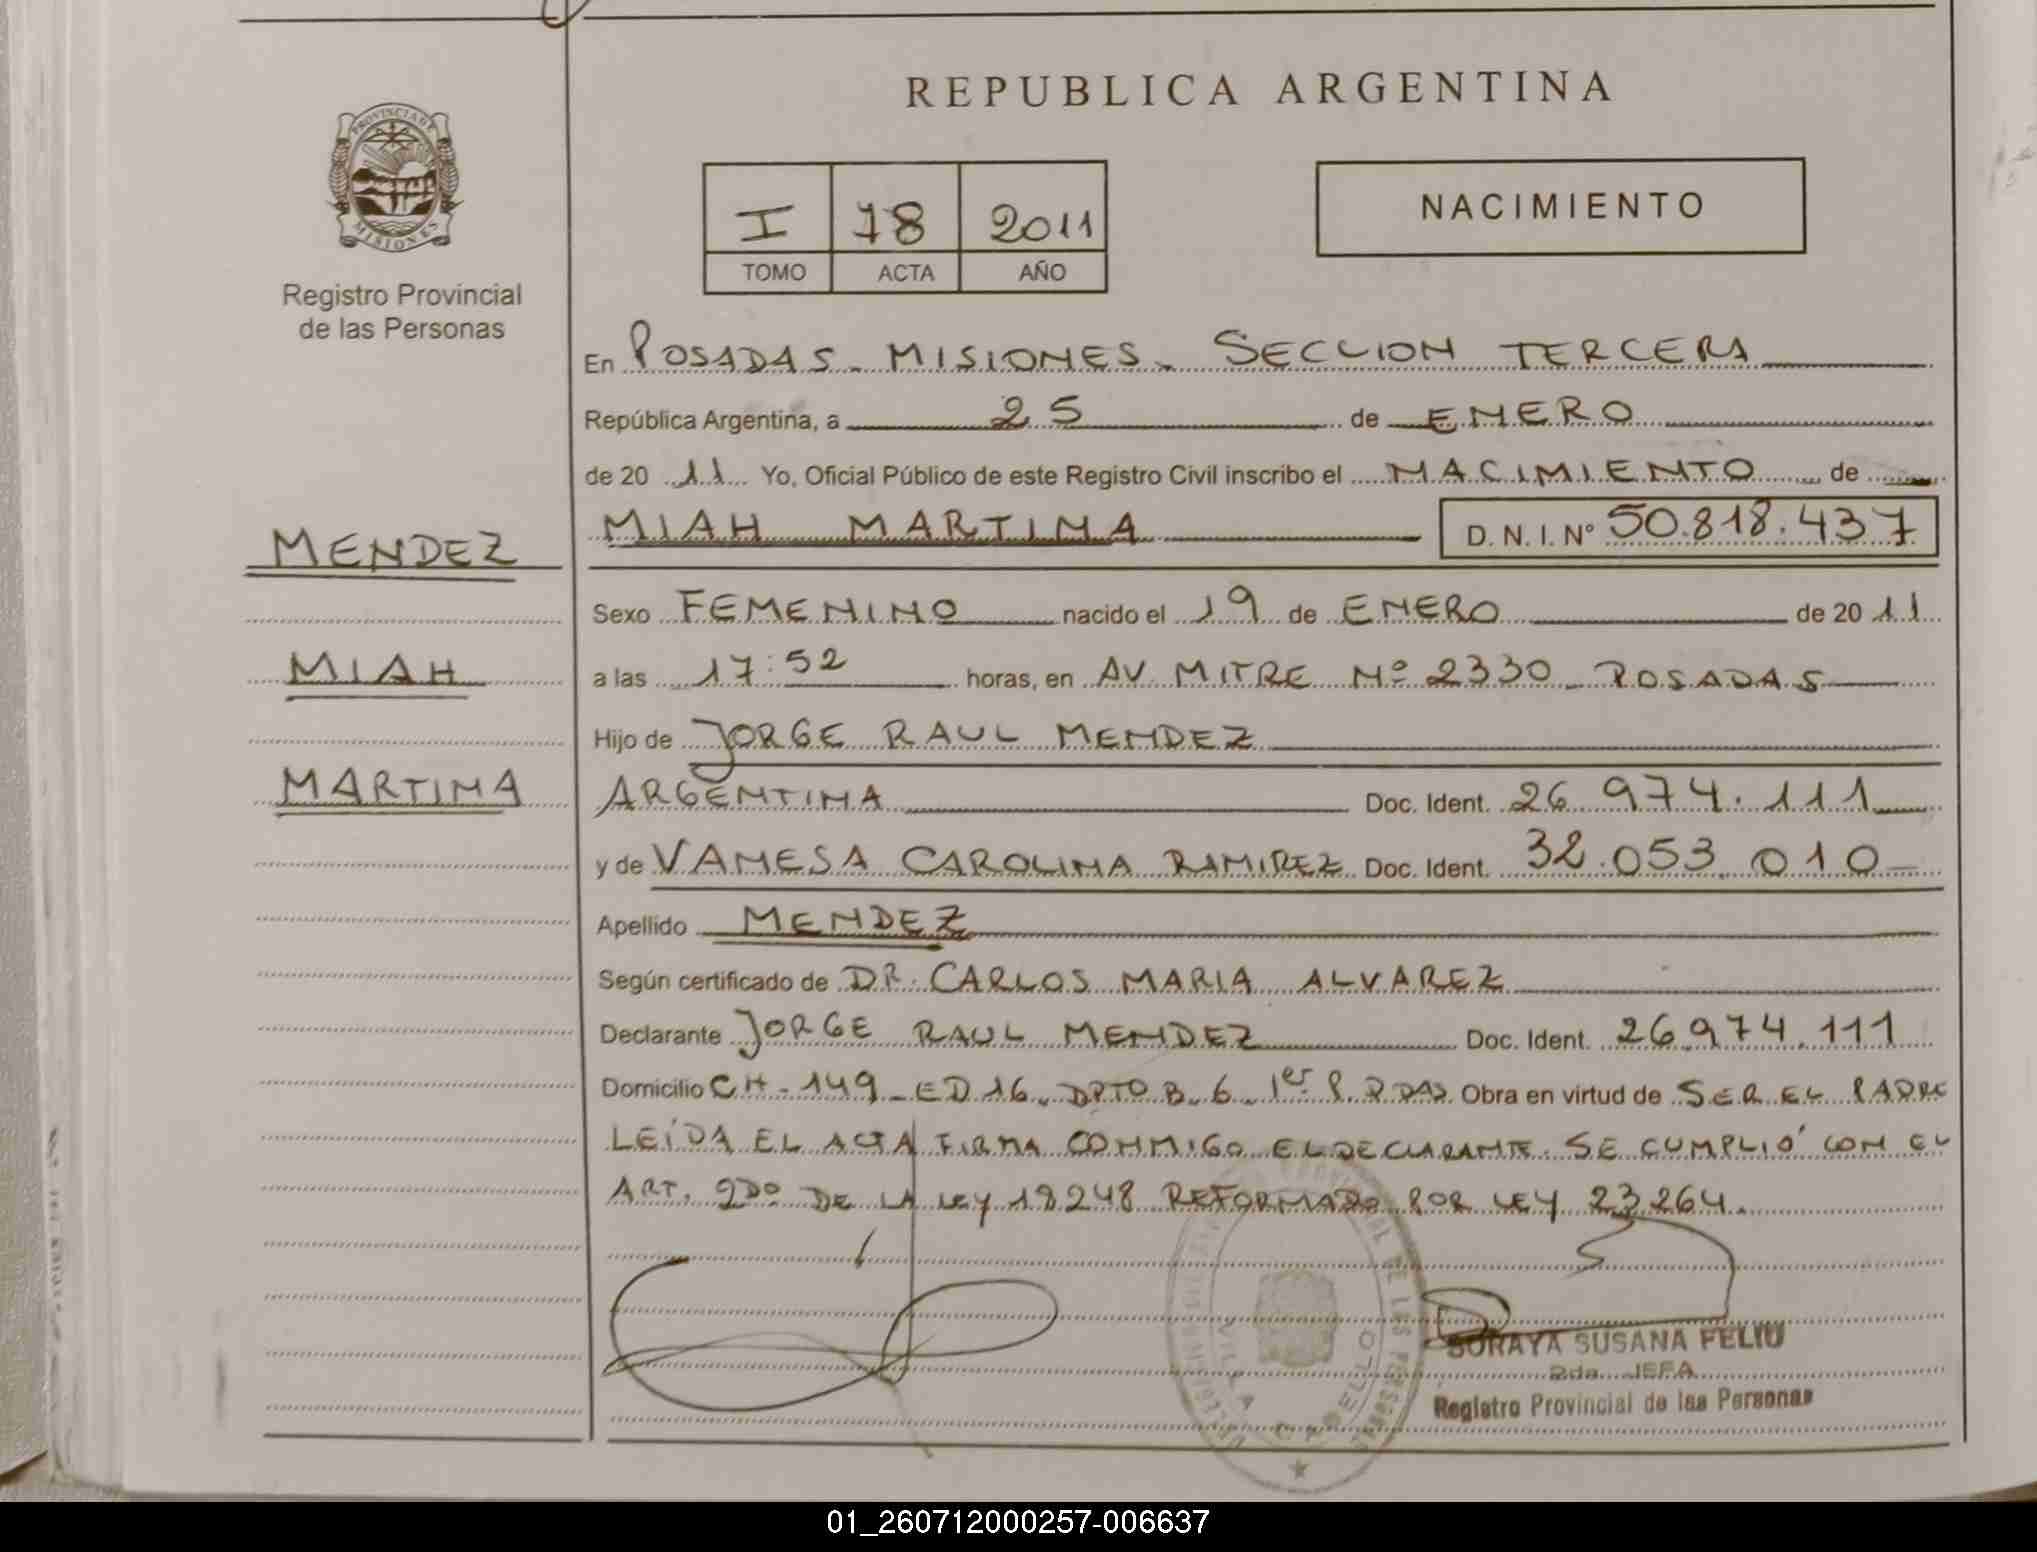 REPUBLICA ARGENTINA
PROVINCIA DE
MISIONES
Registro Provincial
de las Personas
I 78 2011
TOMO ACTA AÑO
NACIMIENTO
En POSADAS - MISIONES - SECCION TERCERA
República Argentina, a 25 de ENERO
de 20 11 Yo, Oficial Público de este Registro Civil inscribo el NACIMIENTO de
MENDEZ
MIAH MARTINA D. N. I. Nº 50.818.437
Sexo FEMENINO nacido el 19 de ENERO de 20 11
MIAH
a las 17:52 horas, en AV. MITRE Nº 2330 - POSADAS
Hijo de JORGE RAUL MENDEZ
MARTINA
ARGENTINA Doc. Ident. 26.974.111
y de VANESA CAROLINA RAMIREZ Doc. Ident. 32.053.010
Apellido MENDEZ
Según certificado de DR. CARLOS MARIA ALVAREZ
Declarante JORGE RAUL MENDEZ Doc. Ident. 26.974.111
Domicilio CH - 149 - ED 16 - DPTO B - 6 - 1er P. PDAS Obra en virtud de SER EL PADRE
LEÍDA EL ACTA FIRMA CONMIGO EL DECLARANTE. SE CUMPLIÓ CON EL
ART. 2DO DE LA LEY 18248 REFORMADO POR LEY 23.264.
SORAYA SUSANA FELIU
2da. JEFA
Registro Provincial de las Personas
01_260712000257-006637